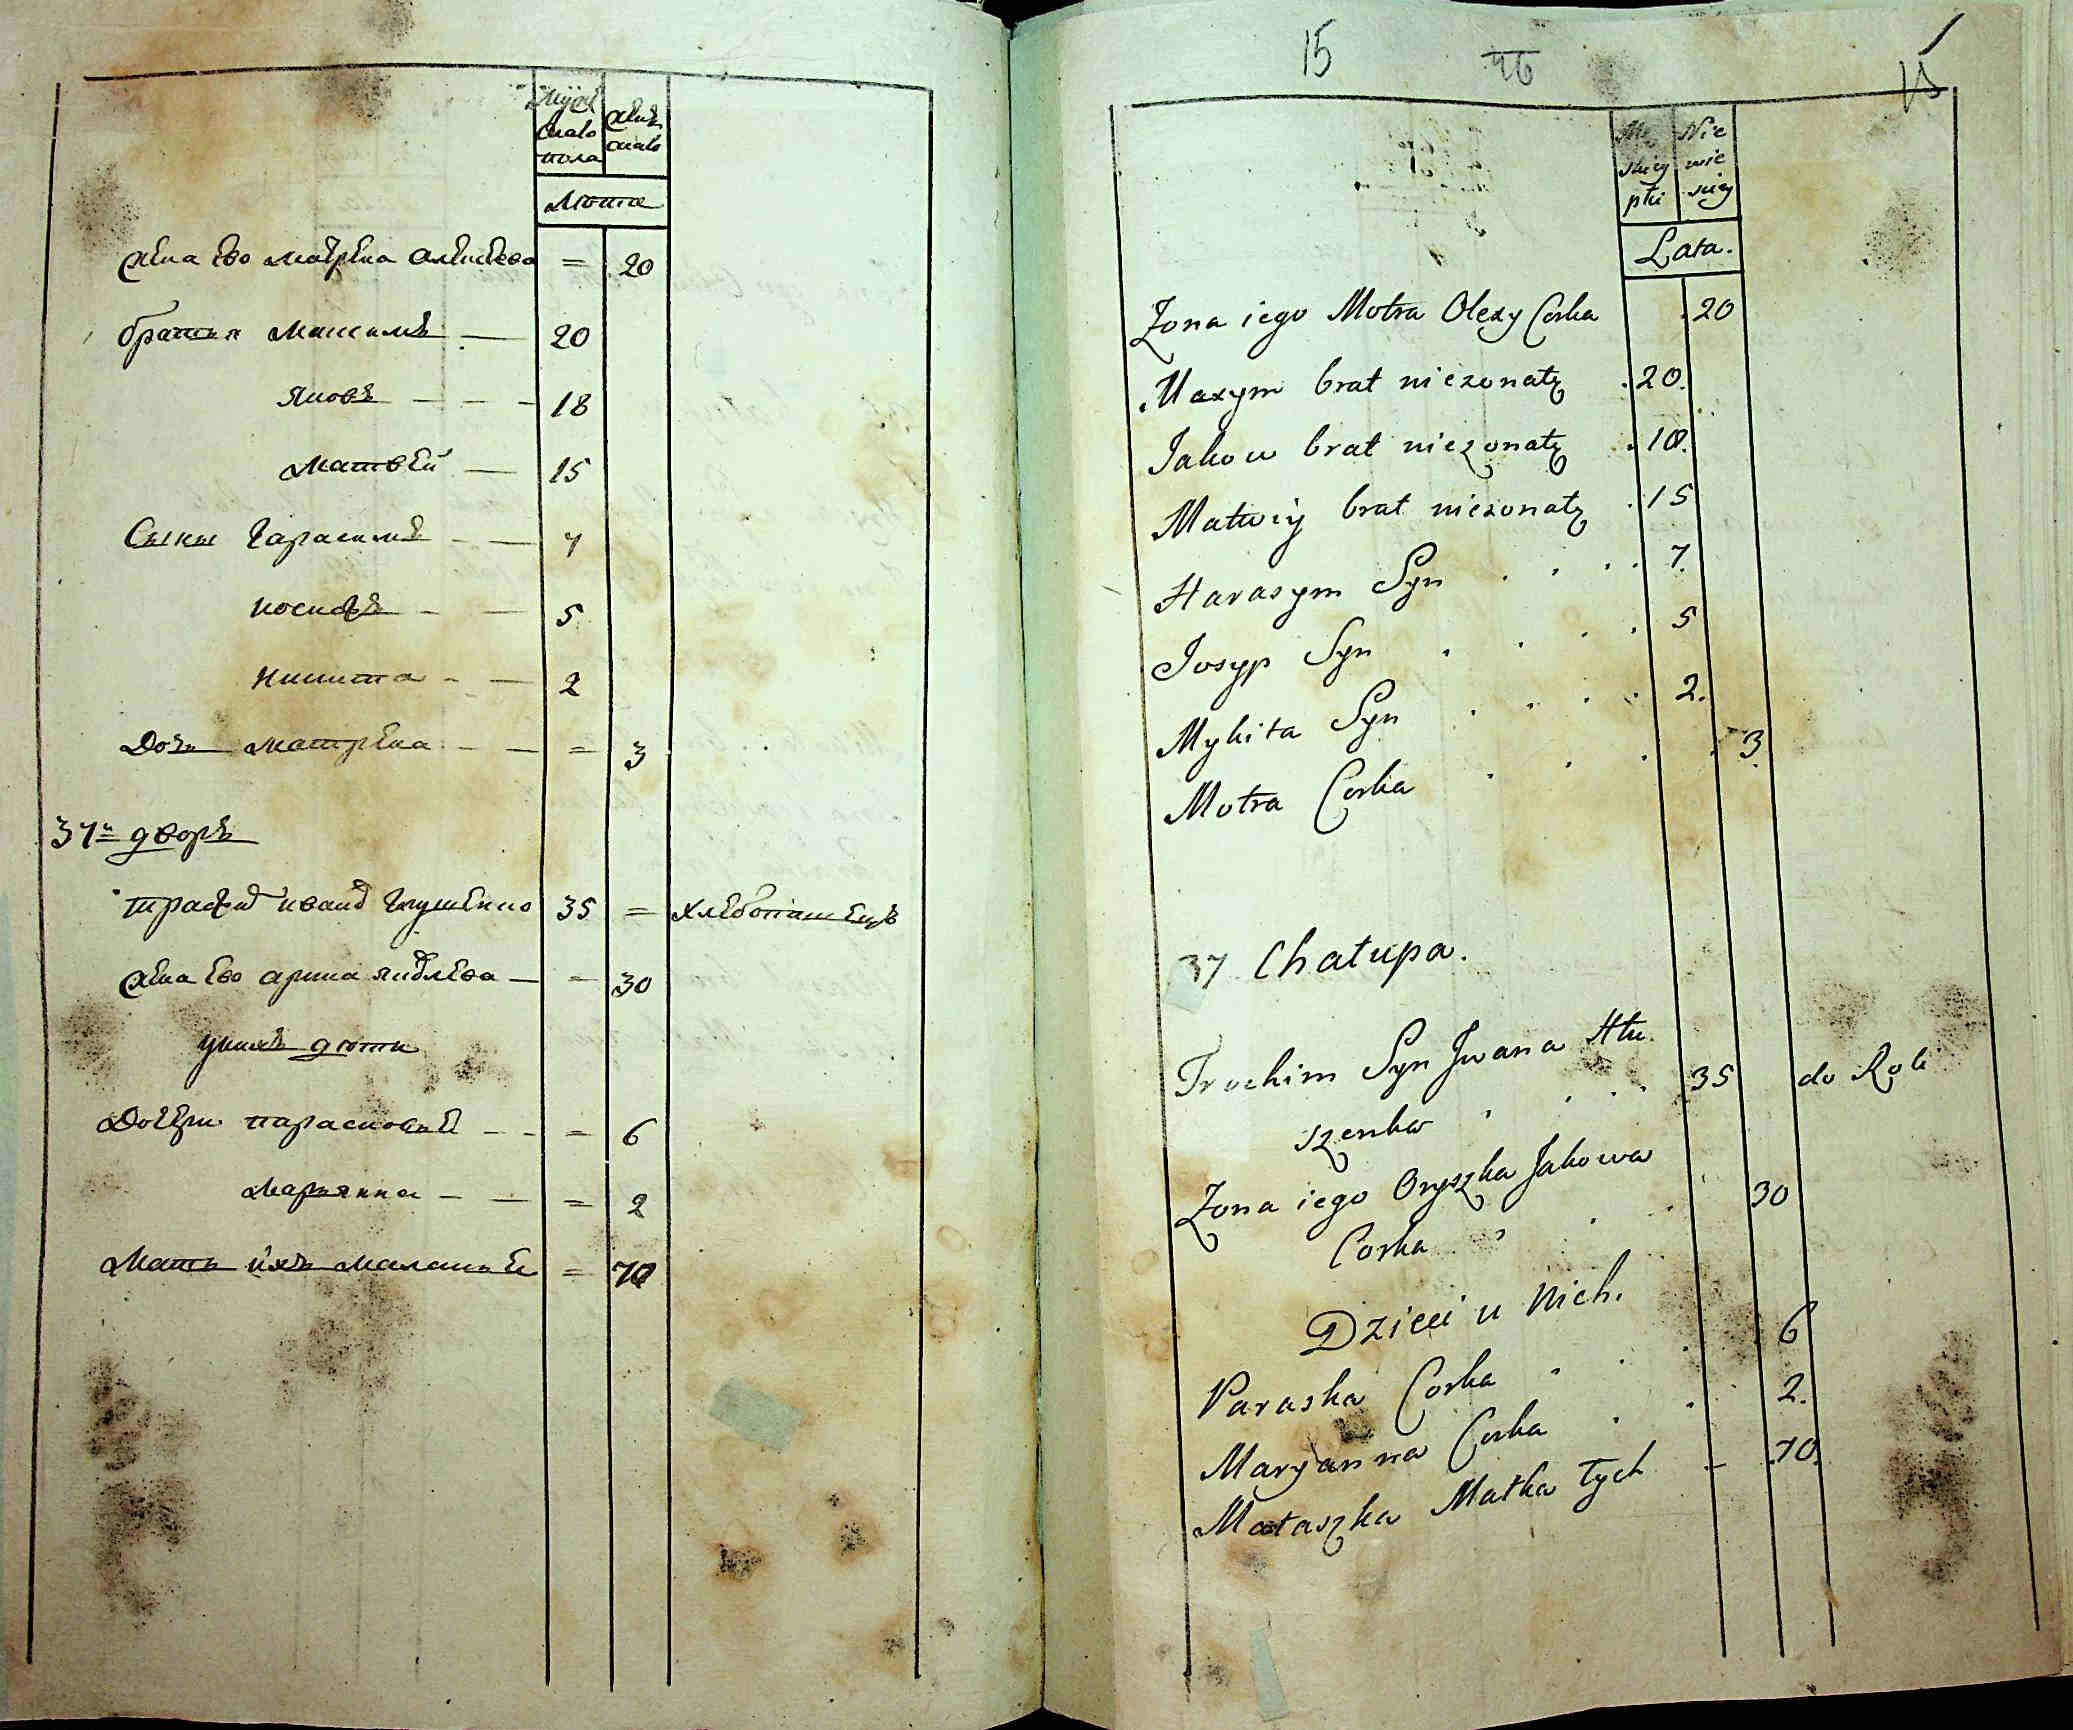 Мужескаго пола
женскаго
Лѣта
жена Ево Матрена Алексѣева = 20
братья Максимъ — 20
Яковъ — — 18
Матвей — 15
Сыны Гарасимъ — — 7
Иосифъ — — 5
Никита — — 2
Дочь Матрена — — = 3
37й дворъ
трафим иванов Глушенко 35 = хлебопашецъ
жена Ево арина яковлева — = 30
у нихъ дѣти
Дочери парасковия — — = 6
Марьянна — — = 2
Мать ихъ Маланья = 70
15 46
Męskiey płci
Niewieściey
Lata.
Zona iego Motra Olexy Corka 20
Maxym brat niezonaty 20.
Jakow brat niezonaty 18.
Matwiy brat niezonaty 15
Harasym Syn 7.
Josyp Syn 5
Mykita Syn 2.
Motra Corka 3.
37 Chałupa.
Trochim Syn Jwana Hłu
szenko 35 do Roli
Zona iego Oryszka Jakowa
Corka 30
Dzieci u nich.
Paraska Corka 6
Maryanna Corka 2.
Małaszka Matka tych 70.